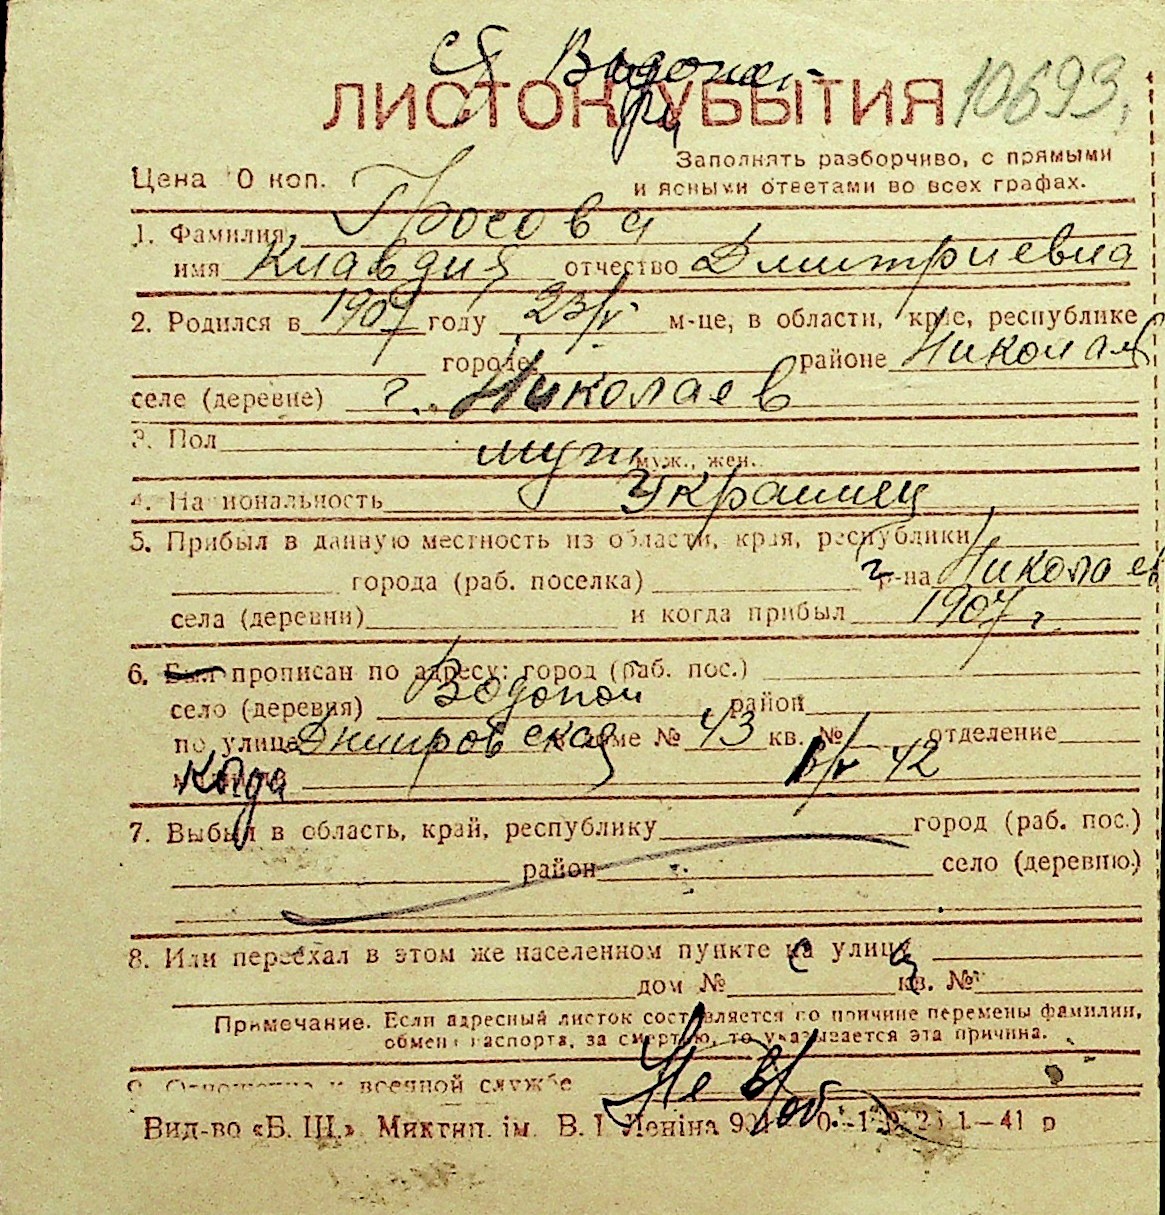 ся Водопой
ЛИСТОК УБЫТИЯ 10693.
Заполнять разборчиво, с прямыми
Цена 0 коп. и ясными ответами во всех графах.
1. Фамилия Тросова
имя Клавдия отчество Дмитриевна
2. Родился в 1907 году 23/V м-це, в области, крае, республике
городе районе Николаев
селе (деревне) г. Николаев
3. Пол муж
муж., жен.
4. Национальность Украинец
5. Прибыл в данную местность из области, края, республики
города (раб. поселка) г. р-на Николаев
села (деревни) и когда прибыл 1907 г.
6. Был прописан по адресу: город (раб. пос.)
село (деревня) Водопой район
по улице Днипровская доме № 43 кв. № отделение
Когда 42
7. Выбыл в область, край, республику город (раб. пос.)
район село (деревню.)
8. Или переехал в этом же населенном пункте на улицу
дом № кв. №
Примечание. Если адресный листок составляется по причине перемены фамилии,
обмена паспорта, за смертью, то указывается эта причина.
9. Отношение к военной службе Не в/об.
Вид-во «Б. Ш.» Миктип. ім. В. І. Леніна 1.—41 р